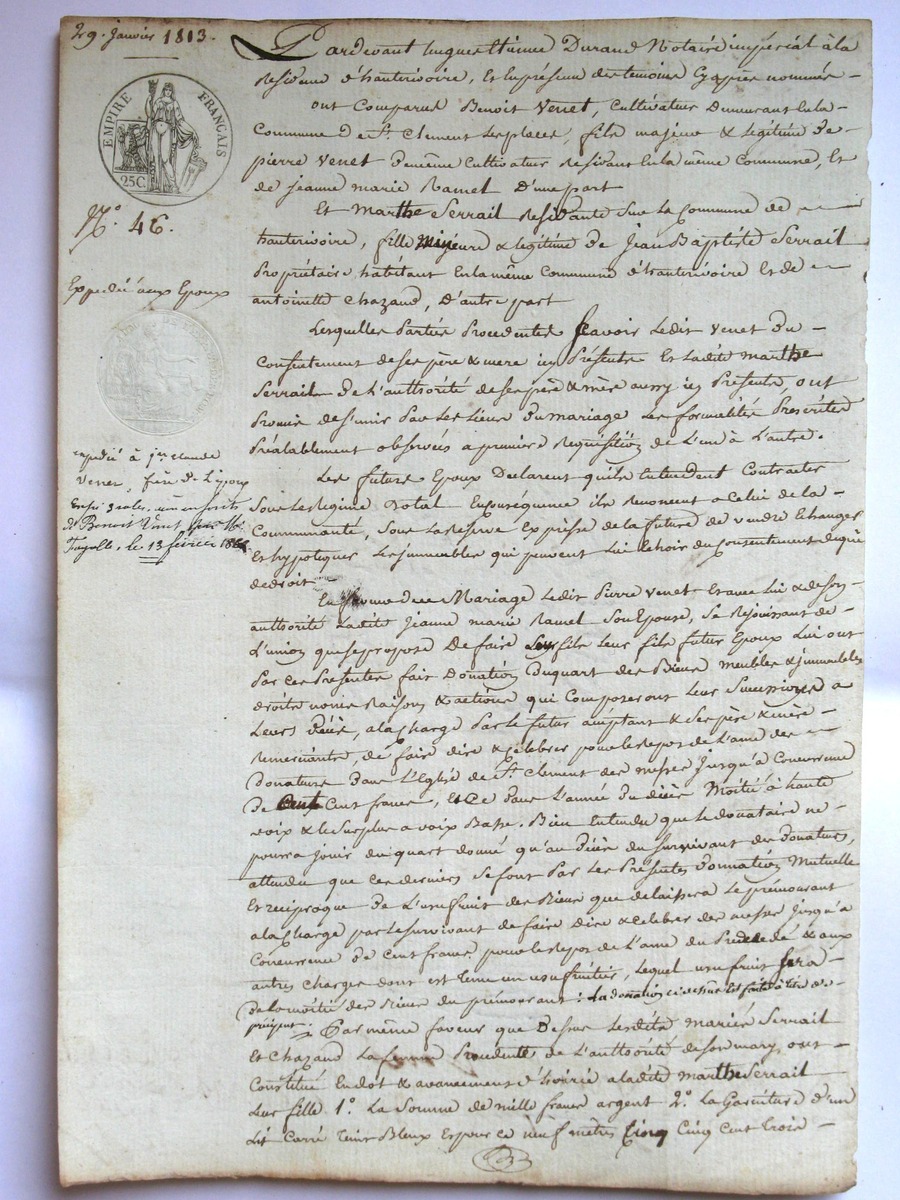 29. Janvier 1813.
EMPIRE FRANÇAIS
25C.
N.° 46.
Expedié aux Epoux
expedié à jn claude
Venet, frère de Lyon
de Benoit Venet, par Me
Fayolle, le 13 février
Pardevant hugues Etienne Durand Notaire imperial à la
Residence d'hauterivoire, Et En présence des temoins Cy après nommés –
ont Comparus Benoit Venet, Cultivateur Demeurant En la –
Commune De St. Clement Les places, fils majeur & Legitime De –
pierre Venet De même Cultivateur Residant En la même Commune, Et
de jeanne marie Ramel D'une part
Et Marthe Serrail Residante Sur la Commune de
hauterivoire, fille Majeure & Legitime de Jean Baptiste Serrail
Propriétaire habitant En la même Commune d'hauterivoire Et de
antoinette Chazaud, D'autre part
Lesquelles Parties Procedentes Sçavoir Ledit Venet Du –
Consentement de ses père & mere icy Présents Et Ladite Marthe
Serrail De L'authorité de ses père & mère aussy icy Présents, ont
Promis de s'unir Par Les Liens Du mariage Les formalités Prescrites
Préalablement observées a première Requisition de L'un à L'autre.
Les futurs Epoux Declarent qu'ils Entendent Contracter
Sous Le Regime Dotal En Conséquence ils Renoncent a Celui de la –
Communauté, Sous La Reserve Expresse de la future de Vendre Echanger
Et hypotequer Les immeubles qui peuvent Lui Echoir du Consentement de qui
de droit
En faveur de ce Mariage Ledit Pierre Venet Et avec Lui & de son
authorité Ladite Jeanne marie Ramel Son Epouse, Se Rejouissant de –
L'union que se propose De faire Leur fils futur Epoux Lui ont
Par Ces Présentes fait Donation Du quart des Biens meubles & immeubles
droits noms Raisons & actions qui Composeront Leur Successions a
Leurs Décès, a la Charge Par le futur acceptant & Ses père & mère –
Remerciants, de faire dire & Celebrer pour le Repos de L'ame des
Donateurs Dans L'Eglise de St. Clement des messes Jusqu'à Concurrence
De Cent francs, Et Ce Dans L'année Du décès Moitié à haute
voix & le Surplus a voix Basse. Bien Entendu que le donataire ne –
pourra jouir du quart donné qu'au Décès du Survivant des Donateurs,
attendu que Ces derniers Se font Par Les Présentes Donnation Mutuelle
Et reciproque De L'usufruit des Biens que delaissera Le prémourant
a la Charge par Le survivant de faire Dire & Celebrer des messes Jusqu'a
Concurrence De Cent francs pour le Repos de L'ame du Prédécédé & aux
autres Charges dont Est Tenu un usufruitier, Lequel usufruit Sera –
De la moitié des Biens du prémourant: La donation ci dessus Est faite à titre de
préciput: Par même faveur que Dessus Lesdits Mariés Serrail
Et Chazaud La femme Procedente de L'authorité de son mary, ont –
Constitué En dot & avancement d'hoirie a ladite Marthe Serrail
Leur fille 1.° La Somme de mille francs argent 2.° La Garniture d'un
Lit Carré Teint Bleux Espour Ce neuf mètres Cinq Cent Trois –